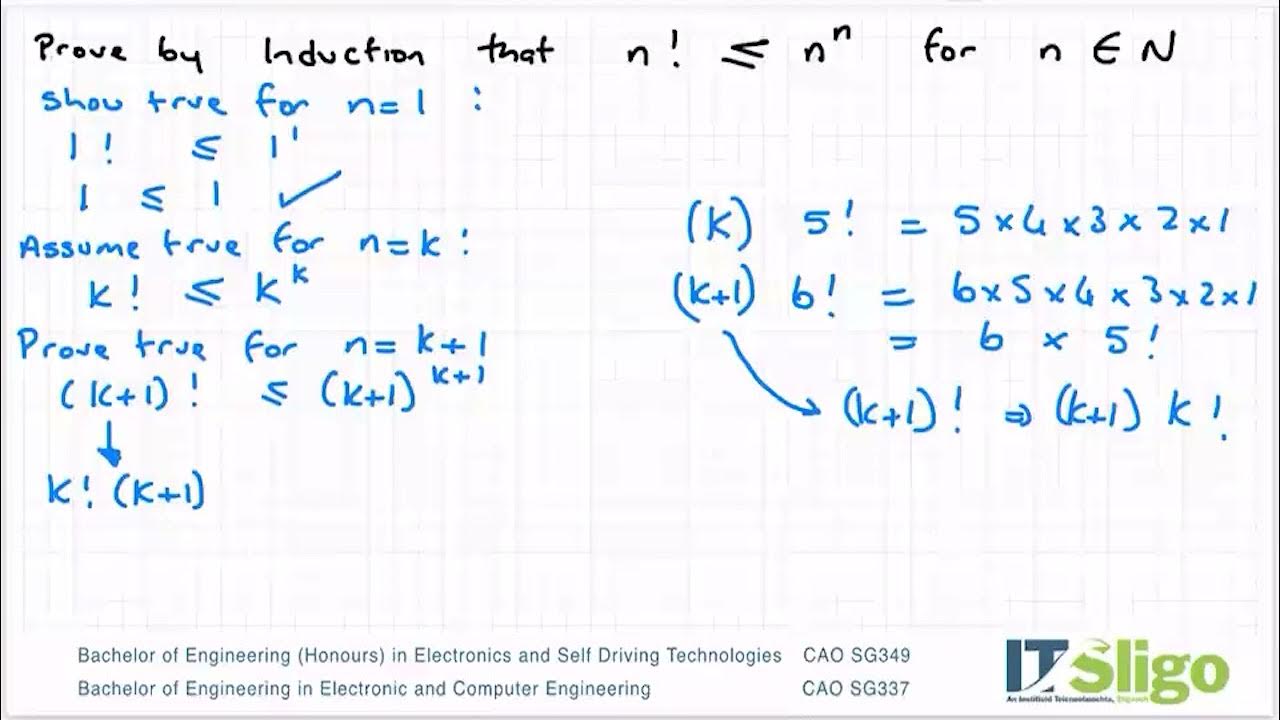 Prove by Induction that n! ≤ nⁿ for n ∈ N
Show true for n=1 :
1! ≤ 1¹
1 ≤ 1 ✓
Assume true for n=k!
k! ≤ kᵏ
Prove true for n=k+1
(k+1)! ≤ (k+1)ᵏ⁺¹
↓
k! (k+1)
(k) 5! = 5×4×3×2×1
(k+1) 6! = 6×5×4×3×2×1
= 6 × 5!
(k+1)! ⇒ (k+1) k!
Bachelor of Engineering (Honours) in Electronics and Self Driving Technologies CAO SG349
Bachelor of Engineering in Electronic and Computer Engineering CAO SG337
IT Sligo
An Institiúid Teicneolaíochta, Sligeach